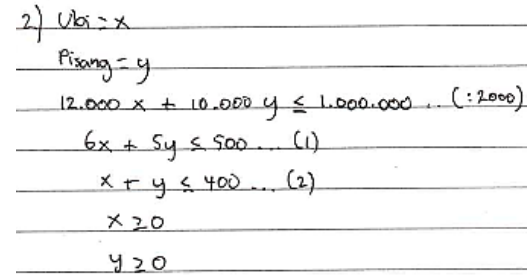 2) Ubi = x
Pisang = y
12.000 x + 10.000 y ≤ 1.000.000 .. (:2000)
6x + 5y ≤ 500 ... (1)
x + y ≤ 400 ... (2)
x ≥ 0
y ≥ 0